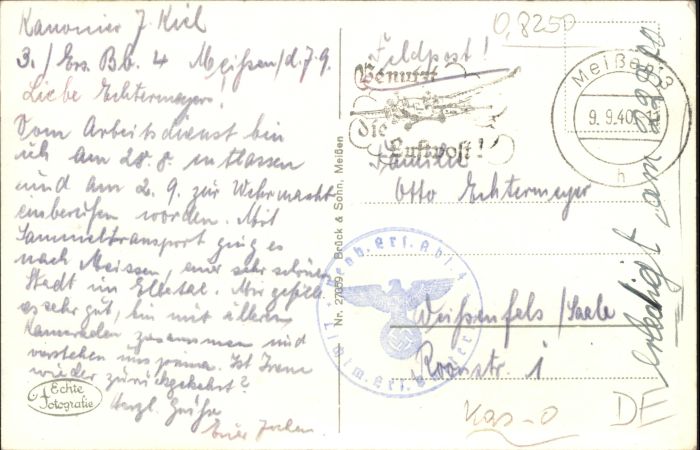 Kanonier J. Kiel
3./Ers. Bb. 4 Meißen/d. 7.9.
Liebe Echtermeyers!
Vom Arbeitsdienst bin
ich am 28.8. entlassen
und am 2.9. zur Wehrmacht
einberufen worden. Mit
Sammeltransport ging es
nach Meissen, einer sehr schönen
Stadt im Elbetal. Mir gefällt
es sehr gut, bin mit älteren
Kameraden zusammen und
verstehen uns prima. Ist Irene
wieder zurückgekehrt?
Herzl. Grüße
Euer Jochen.
Echte
Fotografie
Nr. 27059 Brück & Sohn, Meißen
0,8250
Feldpost!
Benutzt
die
Luftpost!
Meißen 3
9.9.40
h
Familie
Otto Echtermeyer
Weißenfels/Saale
Roonstr. 1
Beob. Ers. Abt. 4
erledigt am
Kas-0
DE